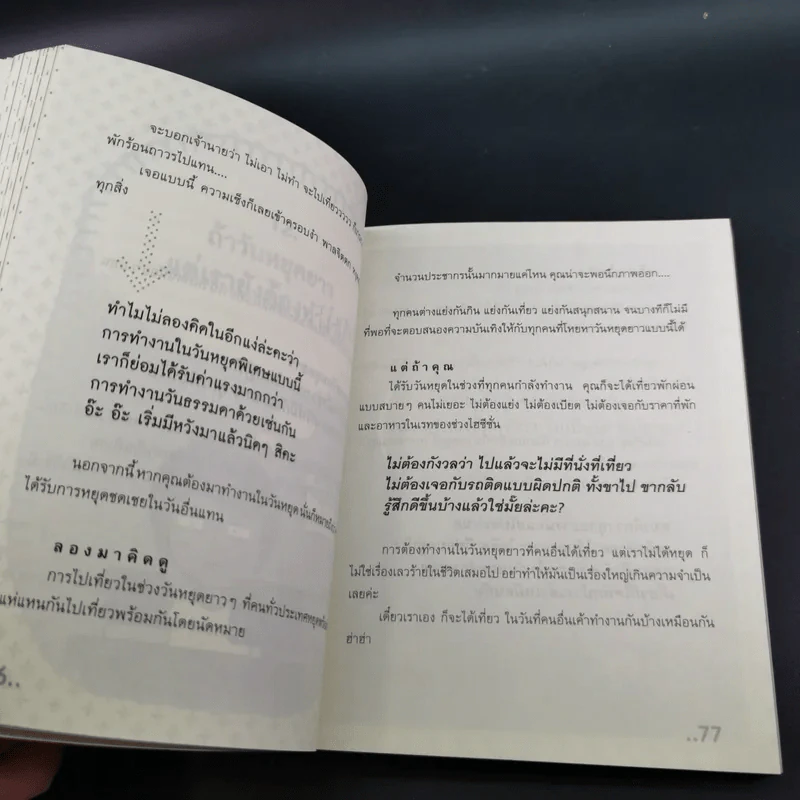 จะบอกเจ้านายว่า ไม่เอา ไม่ทำ จะไปเที่ยววววว
พักร้อนถาวรไปแทน....
เจอแบบนี้ ความเซ็งก็เลยเข้าครอบงำ พาลจิตตก
ทุกสิ่ง
ทำไมไม่ลองคิดในอีกแง่ล่ะคะว่า
การทำงานในวันหยุดพิเศษแบบนี้
เราก็ย่อมได้รับค่าแรงมากกว่า
การทำงานวันธรรมดาด้วยเช่นกัน
อ๊ะ อ๊ะ เริ่มมีหวังมาแล้วนิดๆ สิคะ
นอกจากนี้หากคุณต้องมาทำงานในวันหยุดนั่นก็หมาย
ได้รับการหยุดชดเชยในวันอื่นแทน
ลองมาคิดดู
การไปเที่ยวในช่วงวันหยุดยาวๆ ที่คนทั่วประเทศหยุด
แห่แหนกันไปเที่ยวพร้อมกันโดยนัดหมาย
จำนวนประชากรนั้นมากมายแค่ไหน คุณน่าจะพอนึกภาพออก....
ทุกคนต่างแย่งกันกิน แย่งกันเที่ยว แย่งกันสนุกสนาน จนบางทีก็ไม่มี
ที่พอที่จะตอบสนองความบันเทิงให้กับทุกคนที่โหยหาวันหยุดยาวแบบนี้ได้
แต่ถ้าคุณ
ได้รับวันหยุดในช่วงที่ทุกคนกำลังทำงาน คุณก็จะได้เที่ยวพักผ่อน
แบบสบายๆ คนไม่เยอะ ไม่ต้องแย่ง ไม่ต้องเบียด ไม่ต้องเจอกับราคาที่พัก
และอาหารในเรทของช่วงไฮซีซั่น
ไม่ต้องกังวลว่า ไปแล้วจะไม่มีที่นั่งที่เที่ยว
ไม่ต้องเจอกับรถติดแบบผิดปกติ ทั้งขาไป ขากลับ
รู้สึกดีขึ้นบ้างแล้วใช่มั้ยล่ะคะ?
การต้องทำงานในวันหยุดยาวที่คนอื่นได้เที่ยว แต่เราไม่ได้หยุด ก็
ไม่ใช่เรื่องเลวร้ายในชีวิตเสมอไป อย่าทำให้มันเป็นเรื่องใหญ่เกินความจำเป็น
เลยค่ะ
เดี๋ยวเราเอง ก็จะได้เที่ยว ในวันที่คนอื่นเค้าทำงานกันบ้างเหมือนกัน
ฮ่าฮ่า
..77